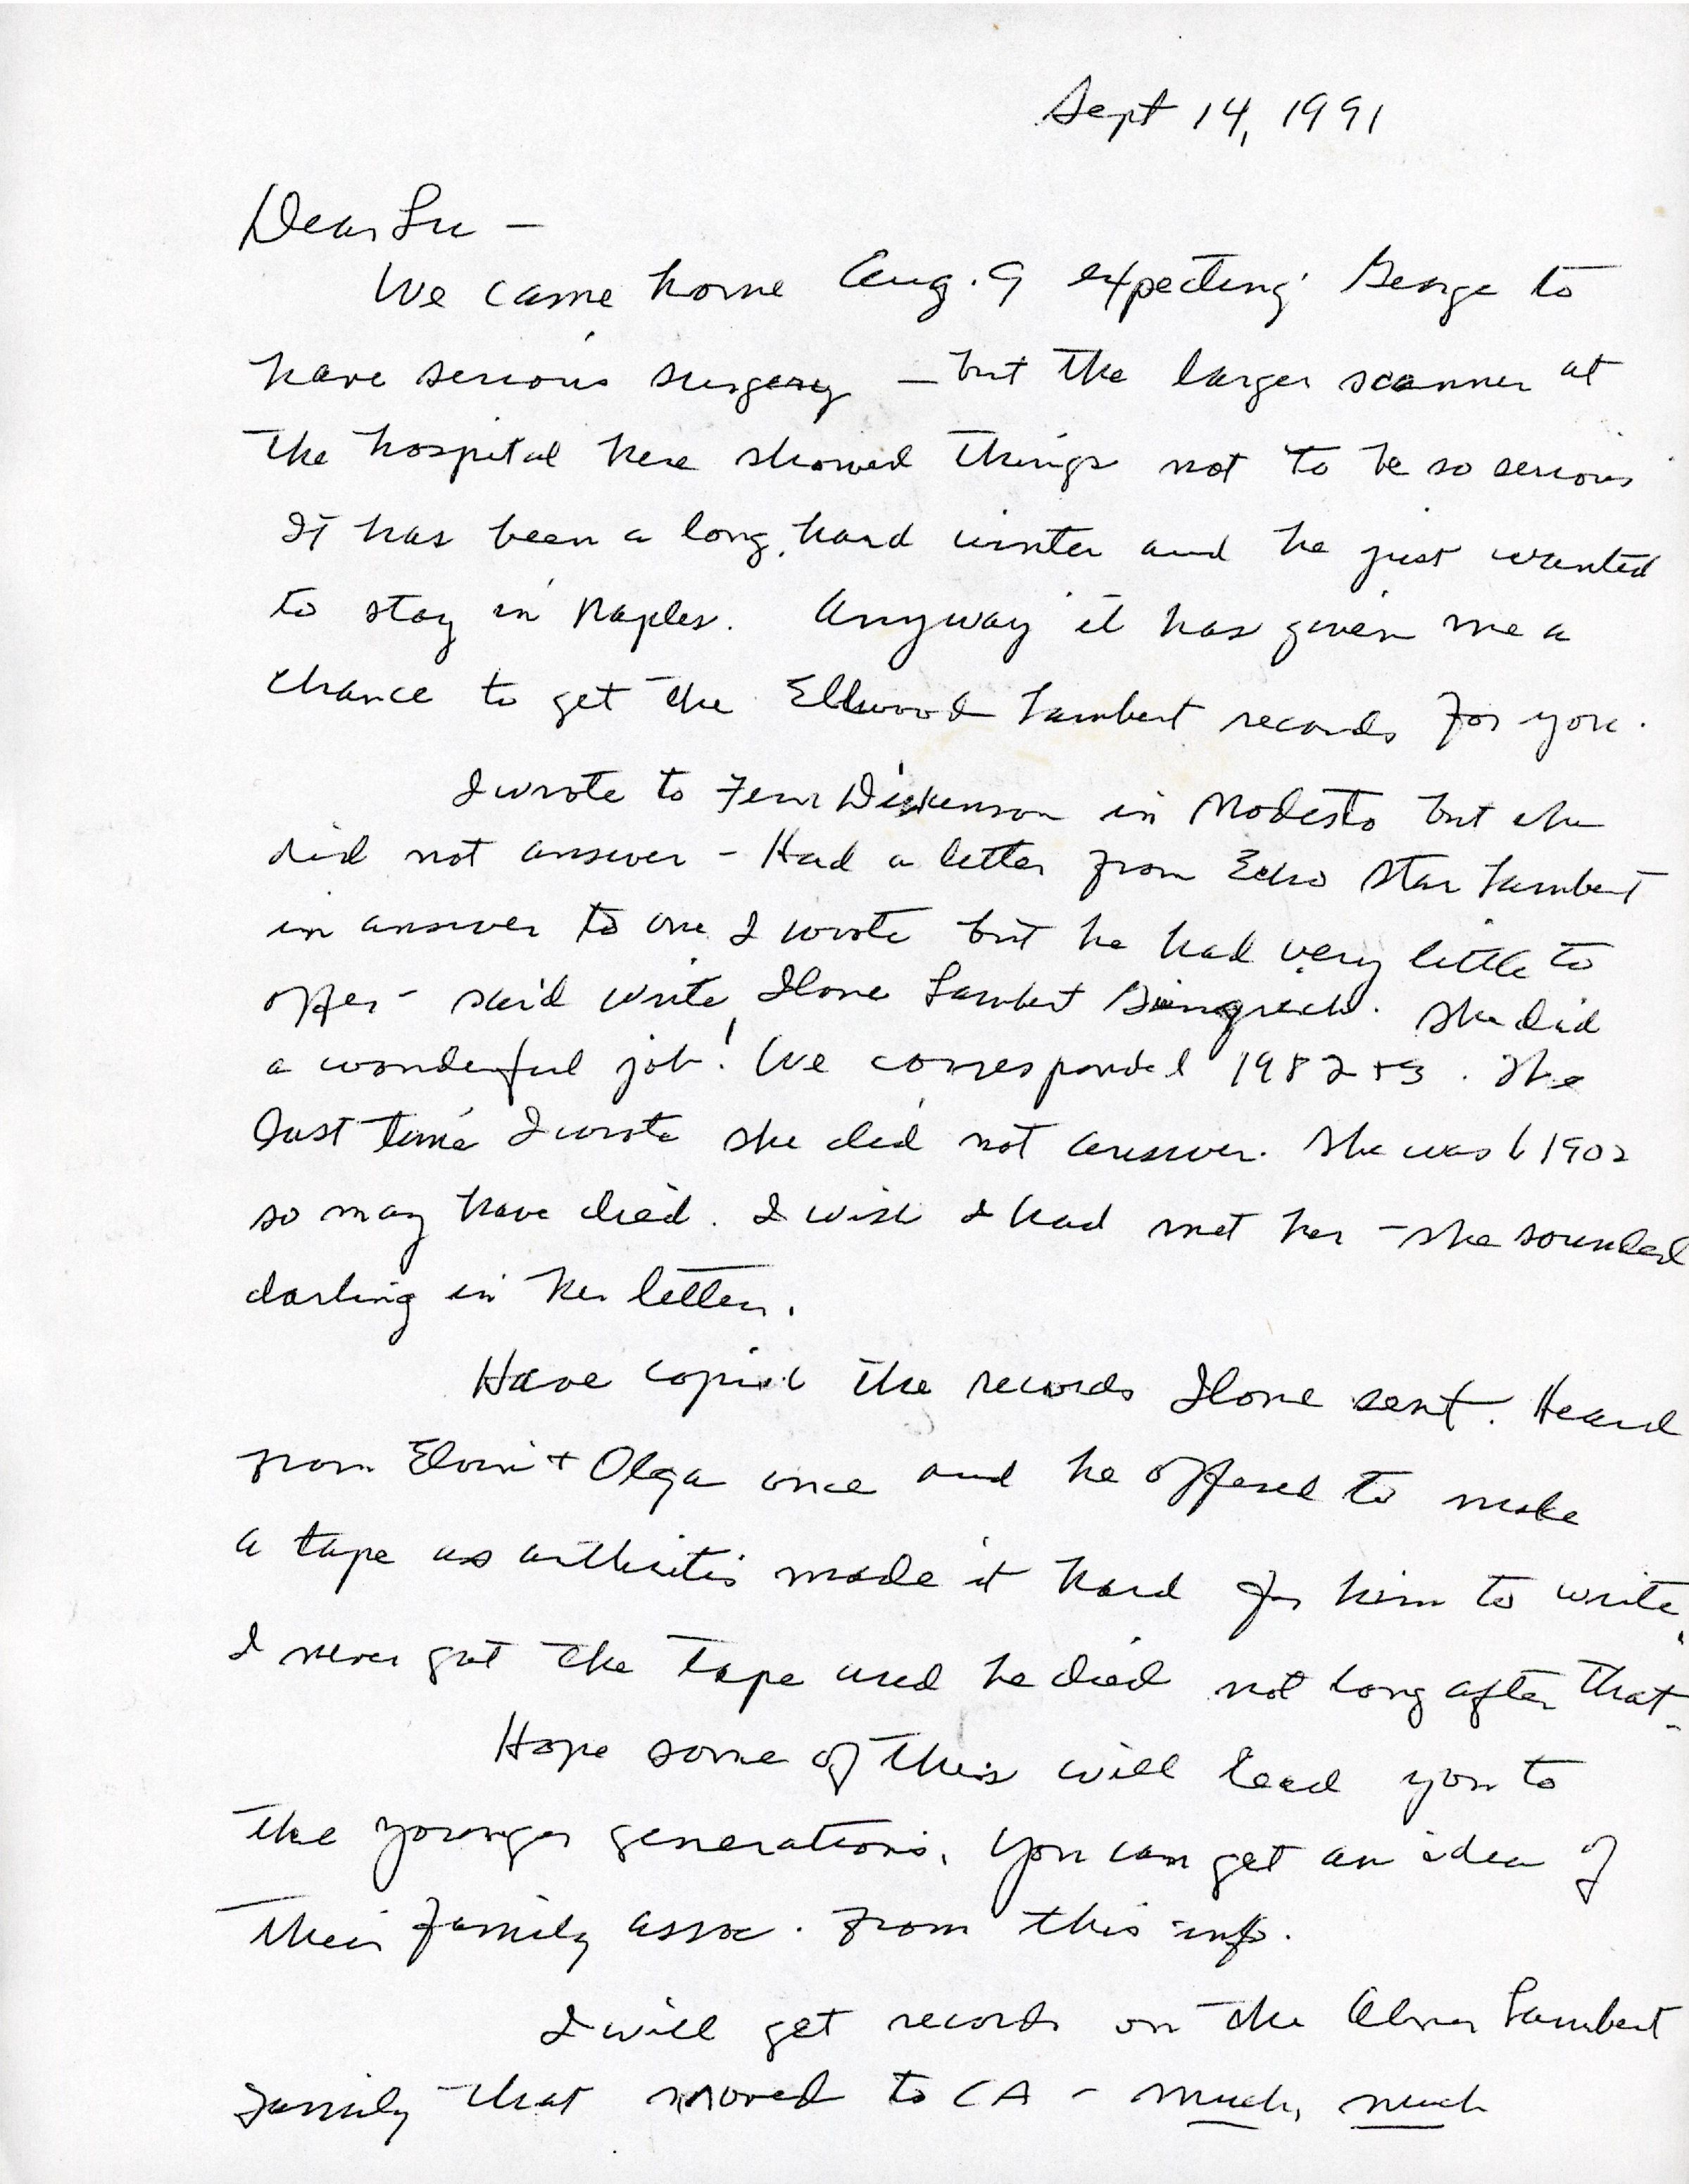 Sept 14, 1991
Dear Lu -
We came home Aug. 9 expecting George to
have serious surgery - but the larger scanner at
the hospital here showed things not to be so serious
It has been a long, hard winter and he just wanted
to stay in Naples. Anyway it has given me a
chance to get the Ellwood Lambert records for you.
I wrote to Fern Dickenson in Modesto but she
did not answer - Had a letter from Echo Star Lambert
in answer to one I wrote but he had very little to
offer - said write Ilone Lambert Gingrich. She did
a wonderful job! We corresponded 1982 + 3. The
last time I wrote she did not answer. She was b 1902
so may have died. I wish I had met her - she sounded
darling in her letters.
Have copied the records Ilone sent. Heard
from Elvin + Olga once and he offered to make
a tape as arthritis made it hard for him to write.
I never got the tape and he died not long after that -
Hope some of this will lead you to
the younger generations. You can get an idea of
their family assoc. from this info.
I will get records on the Lambert
family that moved to CA - much, much